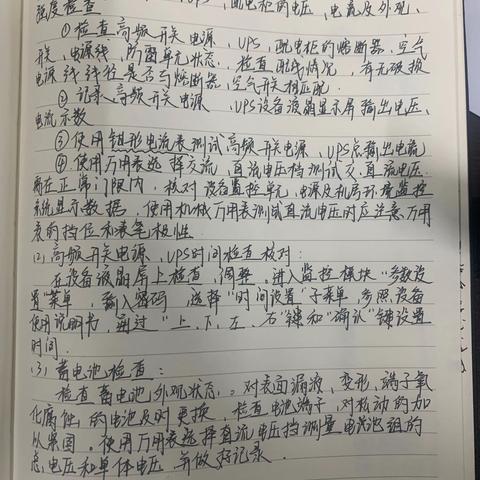 强度检查 UPS、配电柜的电压、电流及外观、
①检查高频开关电源、UPS、配电柜的熔断器、空气
开关、电源线、防雷单元状态、检查配线情况，有无破损
电源线线径是否与熔断器、空气开关相匹配.
②记录高频开关电源、UPS设备液晶显示屏输出电压、
电流示数
③使用钳形电流表测试高频开关电源、UPS总输出电流
④使用万用表选择交流、直流电压档测试交、直流电压.
需在正常门限内，核对设备监控单元、电源及机房环境监控
系统显示数据，使用机械万用表测试直流电压时应注意万用
表的挡位和表笔极性.
(2)高频开关电源、UPS时间检查核对：
在设备液晶屏上检查、调整，进入监控模块“参数设
置”菜单，输入密码，选择“时间设置”子菜单，参照设备
使用说明书，通过“上、下、左、右”键和“确认”键设置
时间.
(3)蓄电池检查：
检查蓄电池外观状态，。对表面漏液、变形、端子氧
化腐蚀的电池及时更换，检查电池端子，对松动的加
以紧固。使用万用表选择直流电压挡测量电池组的
总电压和单体电压并做好记录.